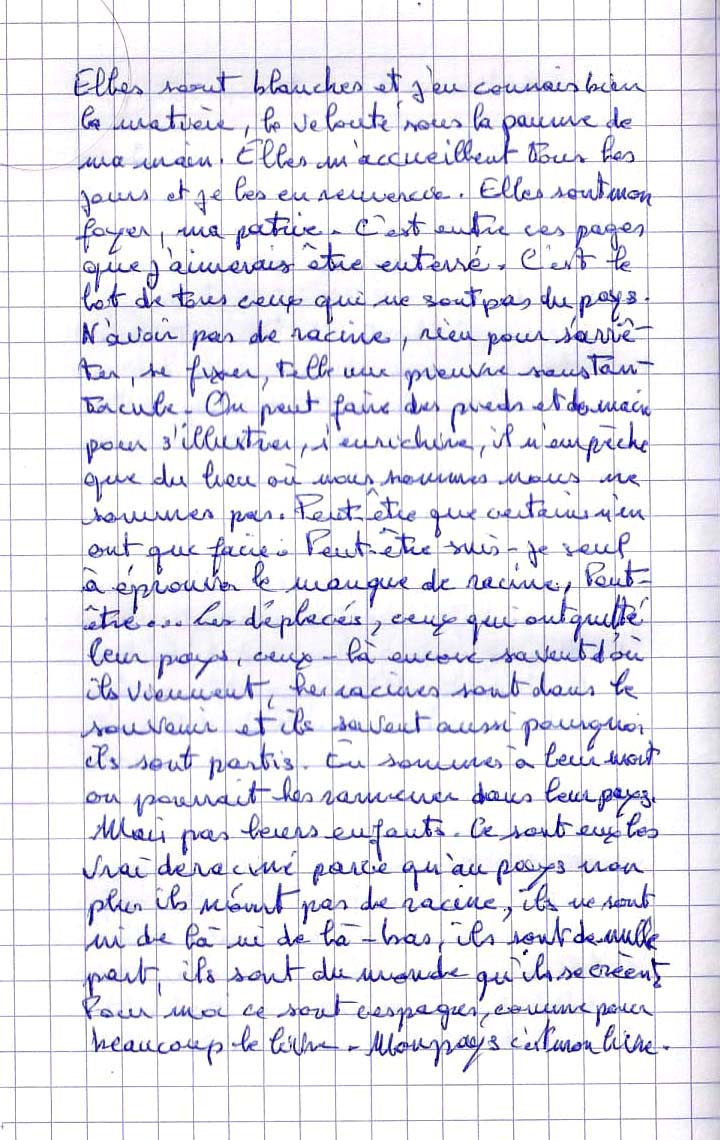 Elles sont blanches et j'en connais bien
la matière, le velouté sous la paume de
ma main. Elles m'accueillent tous les
jours et je les en remercie. Elles sont mon
foyer, ma patrie. C'est entre ces pages
que j'aimerais être enterré. C'est le
lot de tous ceux qui ne sont pas du pays.
N'avoir pas de racine, rien pour s'arrê-
ter, se fixer, telle une pieuvre sans tan-
tacule. On peut faire des pieds et des main
pour s'illustrer, s'enrichire, il n'empêche
que du lieu où nous sommes nous ne
sommes pas. Peut-être que certains n'en
ont que faire. Peut-être suis-je seul
à éprouver le manque de racine, Peut-
être... Les déplacés, ceux qui ont quitté
leur pays, ceux-là encore savent d'où
ils viennent, les racines sont dans le
souvenir et ils savent aussi pourquoi
ils sont partis. En sommes à leur mort
on pourrait les ramener dans leur pays.
Mais pas leurs enfants. Ce sont eux les
vrai deraciné parce qu'au pays non
plus ils n'ont pas de racine, ils ne sont
ni de là ni de là-bas, ils sont de nulle
part, ils sont du monde qu'ils se créent
Pour moi ce sont ces pages, comme pour
beaucoup le livre. Mon pays c'est mon livre.